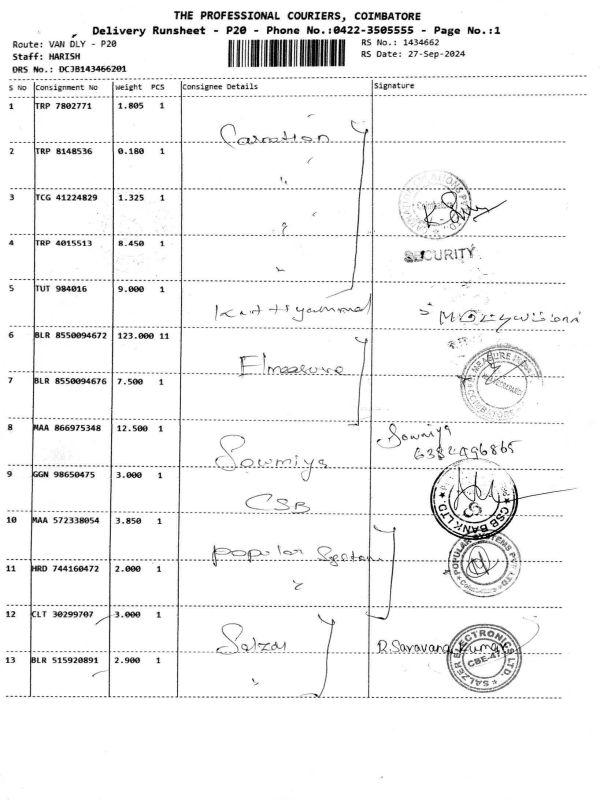 THE PROFESSIONAL COURIERS, COIMBATORE
Delivery Runsheet - P20 - Phone No.:0422-3505555 - Page No.:1
Route: VAN DLY - P20
RS No.: 1434662
Staff: HARISH
RS Date: 27-Sep-2024
DRS No.: DCJB143466201
S No Consignment No Weight PCS Consignee Details Signature
1 TRP 7802771 1.805 1 Carnation
2 TRP 8148536 0.180 1 "
3 TCG 41224829 1.325 1 "
4 TRP 4015513 8.450 1 "
SECURITY
5 TUT 984016 9.000 1
6 BLR 8550094672 123.000 11 Elmeasure
7 BLR 8550094676 7.500 1
8 MAA 866975348 12.500 1 Sowmiya Sowmiya
6382496865
9 GGN 98650475 3.000 1 CSB CSB BANK LTD.
10 MAA 572338054 3.850 1 Popular System POPULAR SYSTEMS PVT LTD
11 HRD 744160472 2.000 1 "
12 CLT 30299707 3.000 1 Salzer R. Saravana Kumar
SALZER ELECTRONICS LTD.
CBE-47
13 BLR 515920891 2.900 1 "